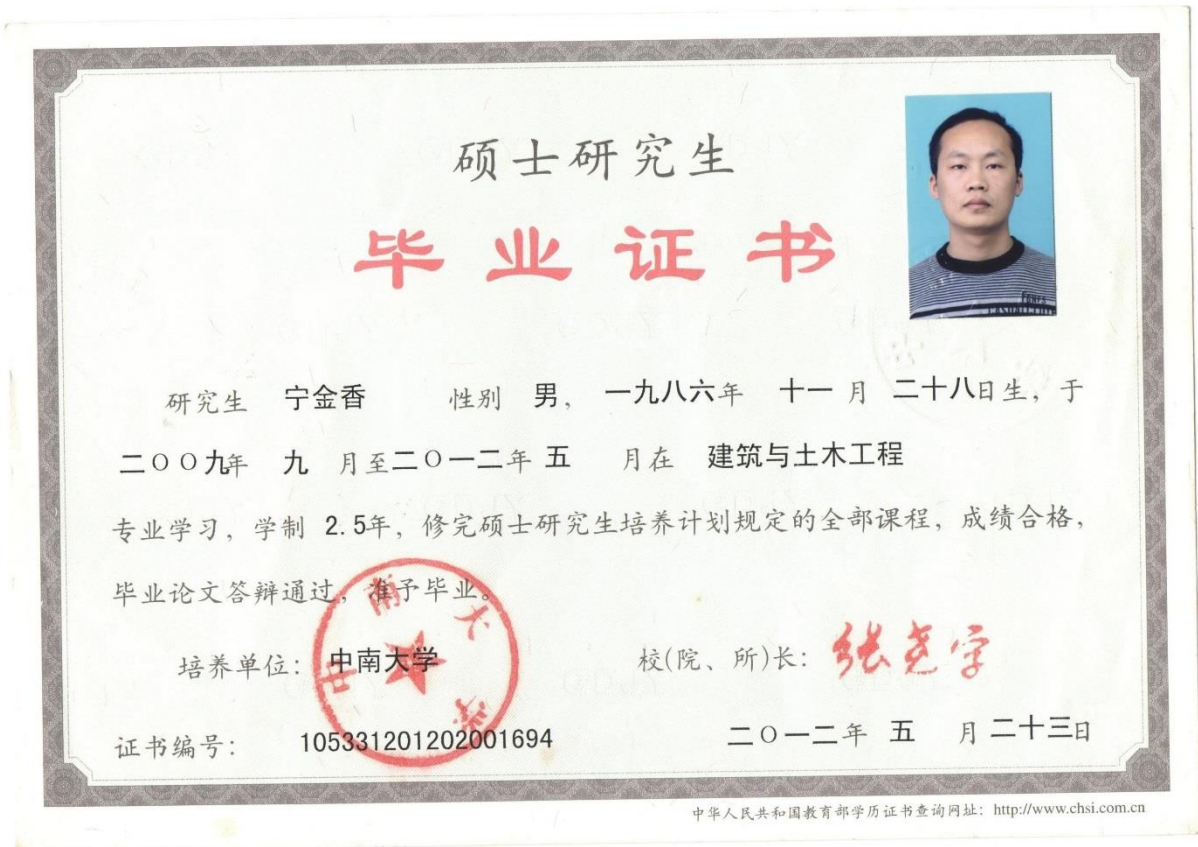 硕士研究生
毕业证书
研究生 宁金香 性别 男， 一九八六年 十一 月 二十八日生，于
二〇〇九年 九 月至二〇一二年 五 月在 建筑与土木工程
专业学习，学制 2.5年，修完硕士研究生培养计划规定的全部课程，成绩合格，
毕业论文答辩通过，准予毕业。
培养单位： 中南大学 校(院、所)长： 张尧学
中南大学
证书编号： 105331201202001694 二〇一二年 五 月 二十三日
中华人民共和国教育部学历证书查询网址：http://www.chsi.com.cn